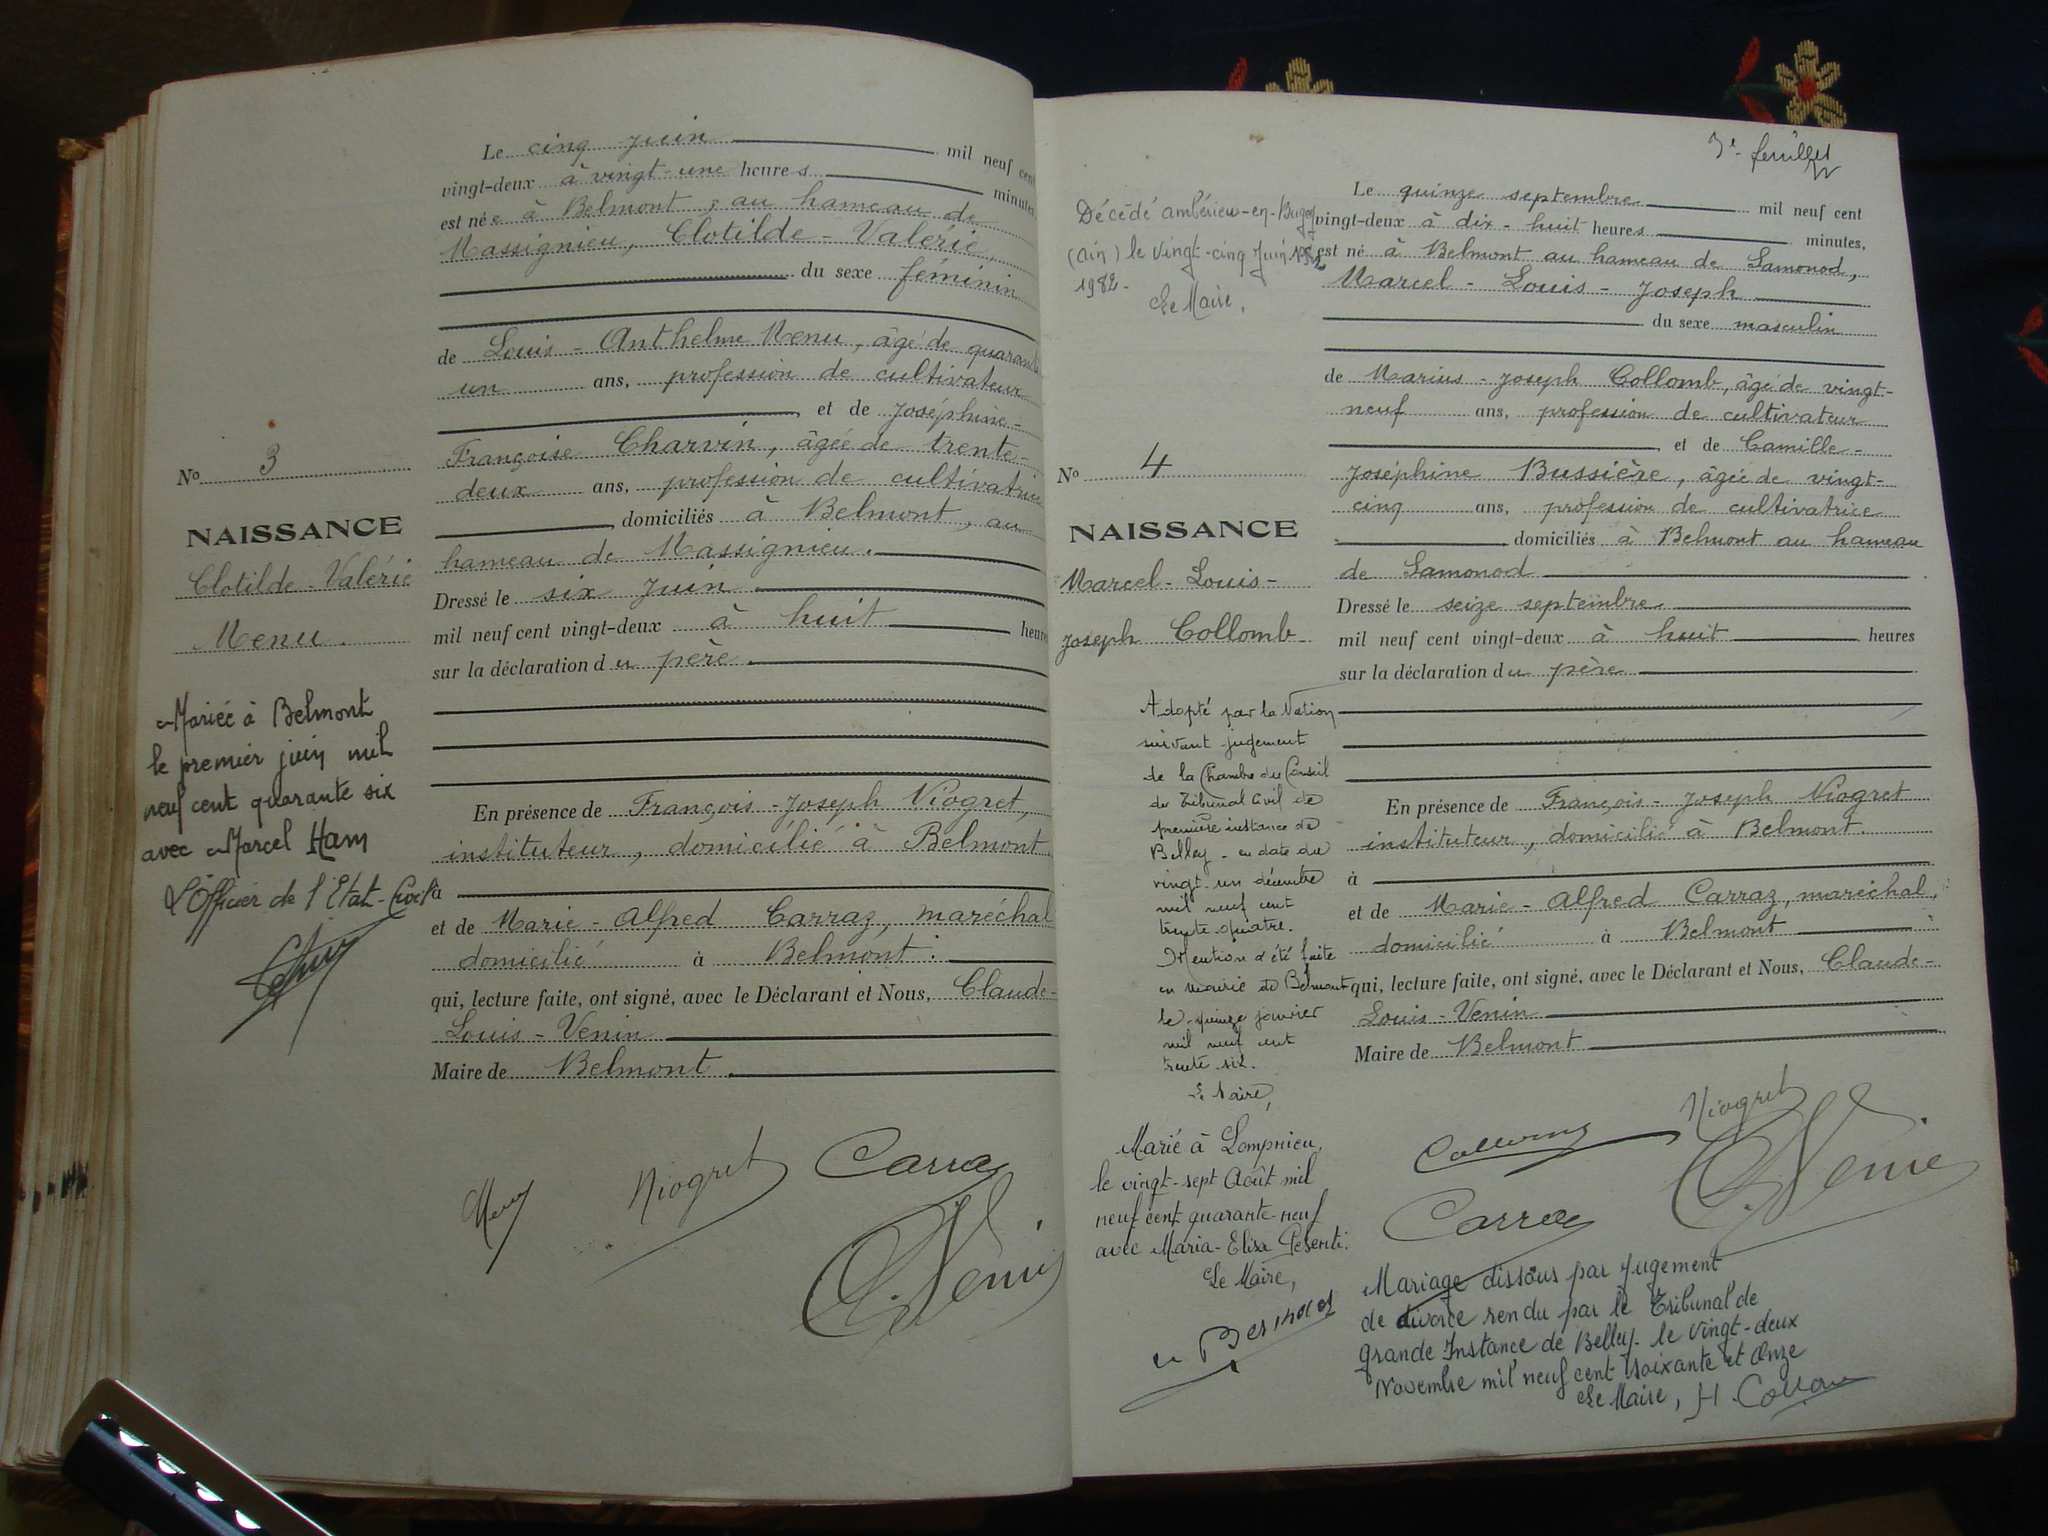 Le cinq juin mil neuf cent
vingt-deux à vingt-une heures minutes
est née à Belmont, au hameau de
Massignieu, Clotilde-Valérie,
du sexe féminin
de Louis-Anthelme Menu, âgé de quarante
un ans, profession de cultivateur
et de Joséphine-
Françoise Charvin, âgée de trente-
deux ans, profession de cultivatrice
domiciliés à Belmont, au
hameau de Massignieu.
Dressé le six juin
mil neuf cent vingt-deux à huit heures
sur la déclaration du père.
En présence de François-Joseph Niogret,
instituteur, domicilié à Belmont
à
et de Marie-Alfred Carraz, maréchal
domicilié à Belmont.
qui, lecture faite, ont signé, avec le Déclarant et Nous, Claude-
Louis-Venin
Maire de Belmont.
Niogret Carraz
No 3
NAISSANCE
Clotilde-Valérie
Menu.
Mariée à Belmont
le premier juin mil
neuf cent quarante six
avec Marcel Ham
L'Officier de l'Etat-Civil
3e feuillet
Le quinze septembre mil neuf cent
vingt-deux à dix-huit heures minutes,
est né à Belmont au hameau de Samonod,
Marcel-Louis-Joseph
du sexe masculin
de Marius-Joseph Collomb, âgé de vingt-
neuf ans, profession de cultivateur
et de Camille-
Joséphine Bussière, âgée de vingt-
cinq ans, profession de cultivatrice
domiciliés à Belmont au hameau
de Samonod
Dressé le seize septembre
mil neuf cent vingt-deux à huit heures
sur la déclaration du père
En présence de François-Joseph Niogret
instituteur, domicilié à Belmont.
à
et de Marie-Alfred Carraz, maréchal,
domicilié à Belmont à
qui, lecture faite, ont signé, avec le Déclarant et Nous, Claude-
Louis-Venin
Maire de Belmont
Niogret
Carraz
Décédé ambérieu-en-Bugey
(Ain) le vingt-cinq Juin
1982-
Le Maire,
No 4
NAISSANCE
Marcel-Louis-
Joseph Collomb
Adopté par la Nation
suivant jugement
de la Chambre du Conseil
du Tribunal Civil de
première instance de
Belley - en date du
vingt-un décembre
mil neuf cent
trente quatre.
Mention d'été faite
en mairie de Belmont
le quinze janvier
mil neuf cent
trente six.
Le Maire,
Marié à Lompnieu,
le vingt-sept Août mil
neuf cent quarante-neuf
avec Maria-Elisa Pesenti.
Le Maire,
Mariage dissous par jugement
de divorce rendu par le Tribunal de
Grande Instance de Belley le vingt-deux
Novembre mil neuf cent soixante et Onze
Le Maire,